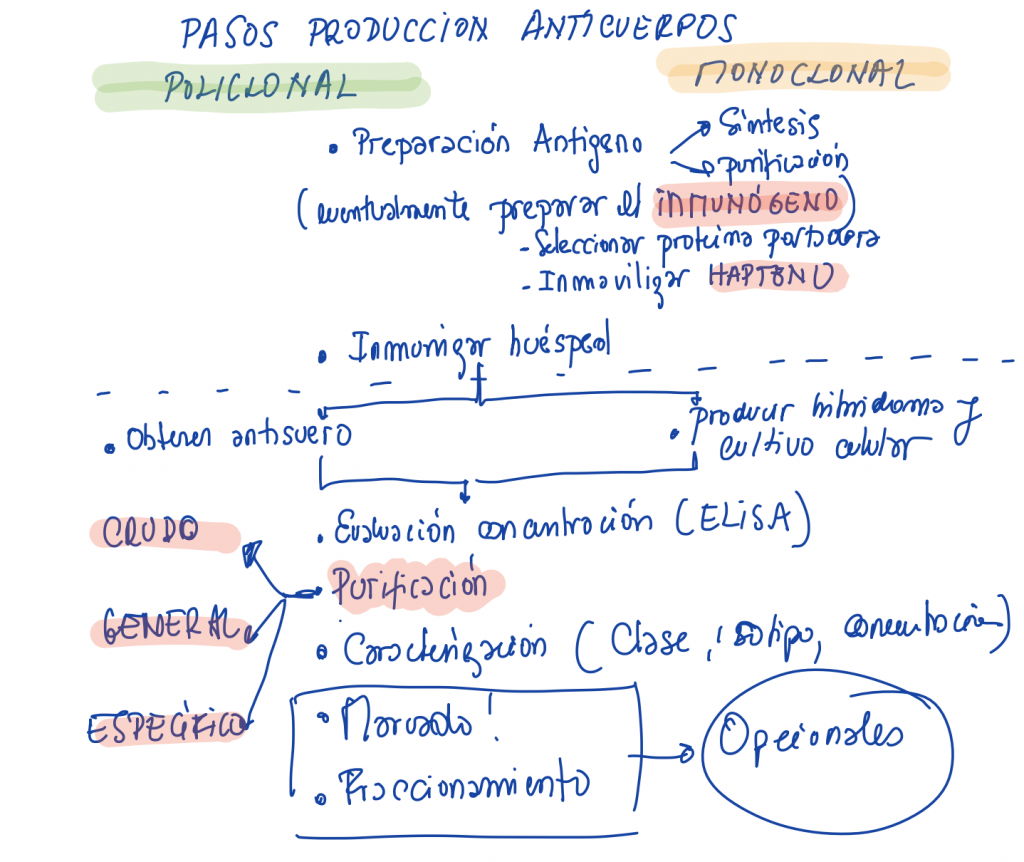 PASOS PRODUCCION ANTICUERPOS
POLICLONAL
MONOCLONAL
• Preparación Antigeno
Sintesis
purificación
(eventualmente preparar el iNMUNÓGENO)
- Seleccionar proteina portadora
- Inmovilizar HAPTENO
• Inmunizar huésped
• Obtener antisuero
• producir hibridoma y
cultivo celular
• Evaluación concentración (ELiSA)
CRUDO
• Purificación
GENERAL
• Caracterización (Clase, isotipo, concentración)
ESPECÍFICO
• Marcado!
• Fraccionamiento
Opcionales